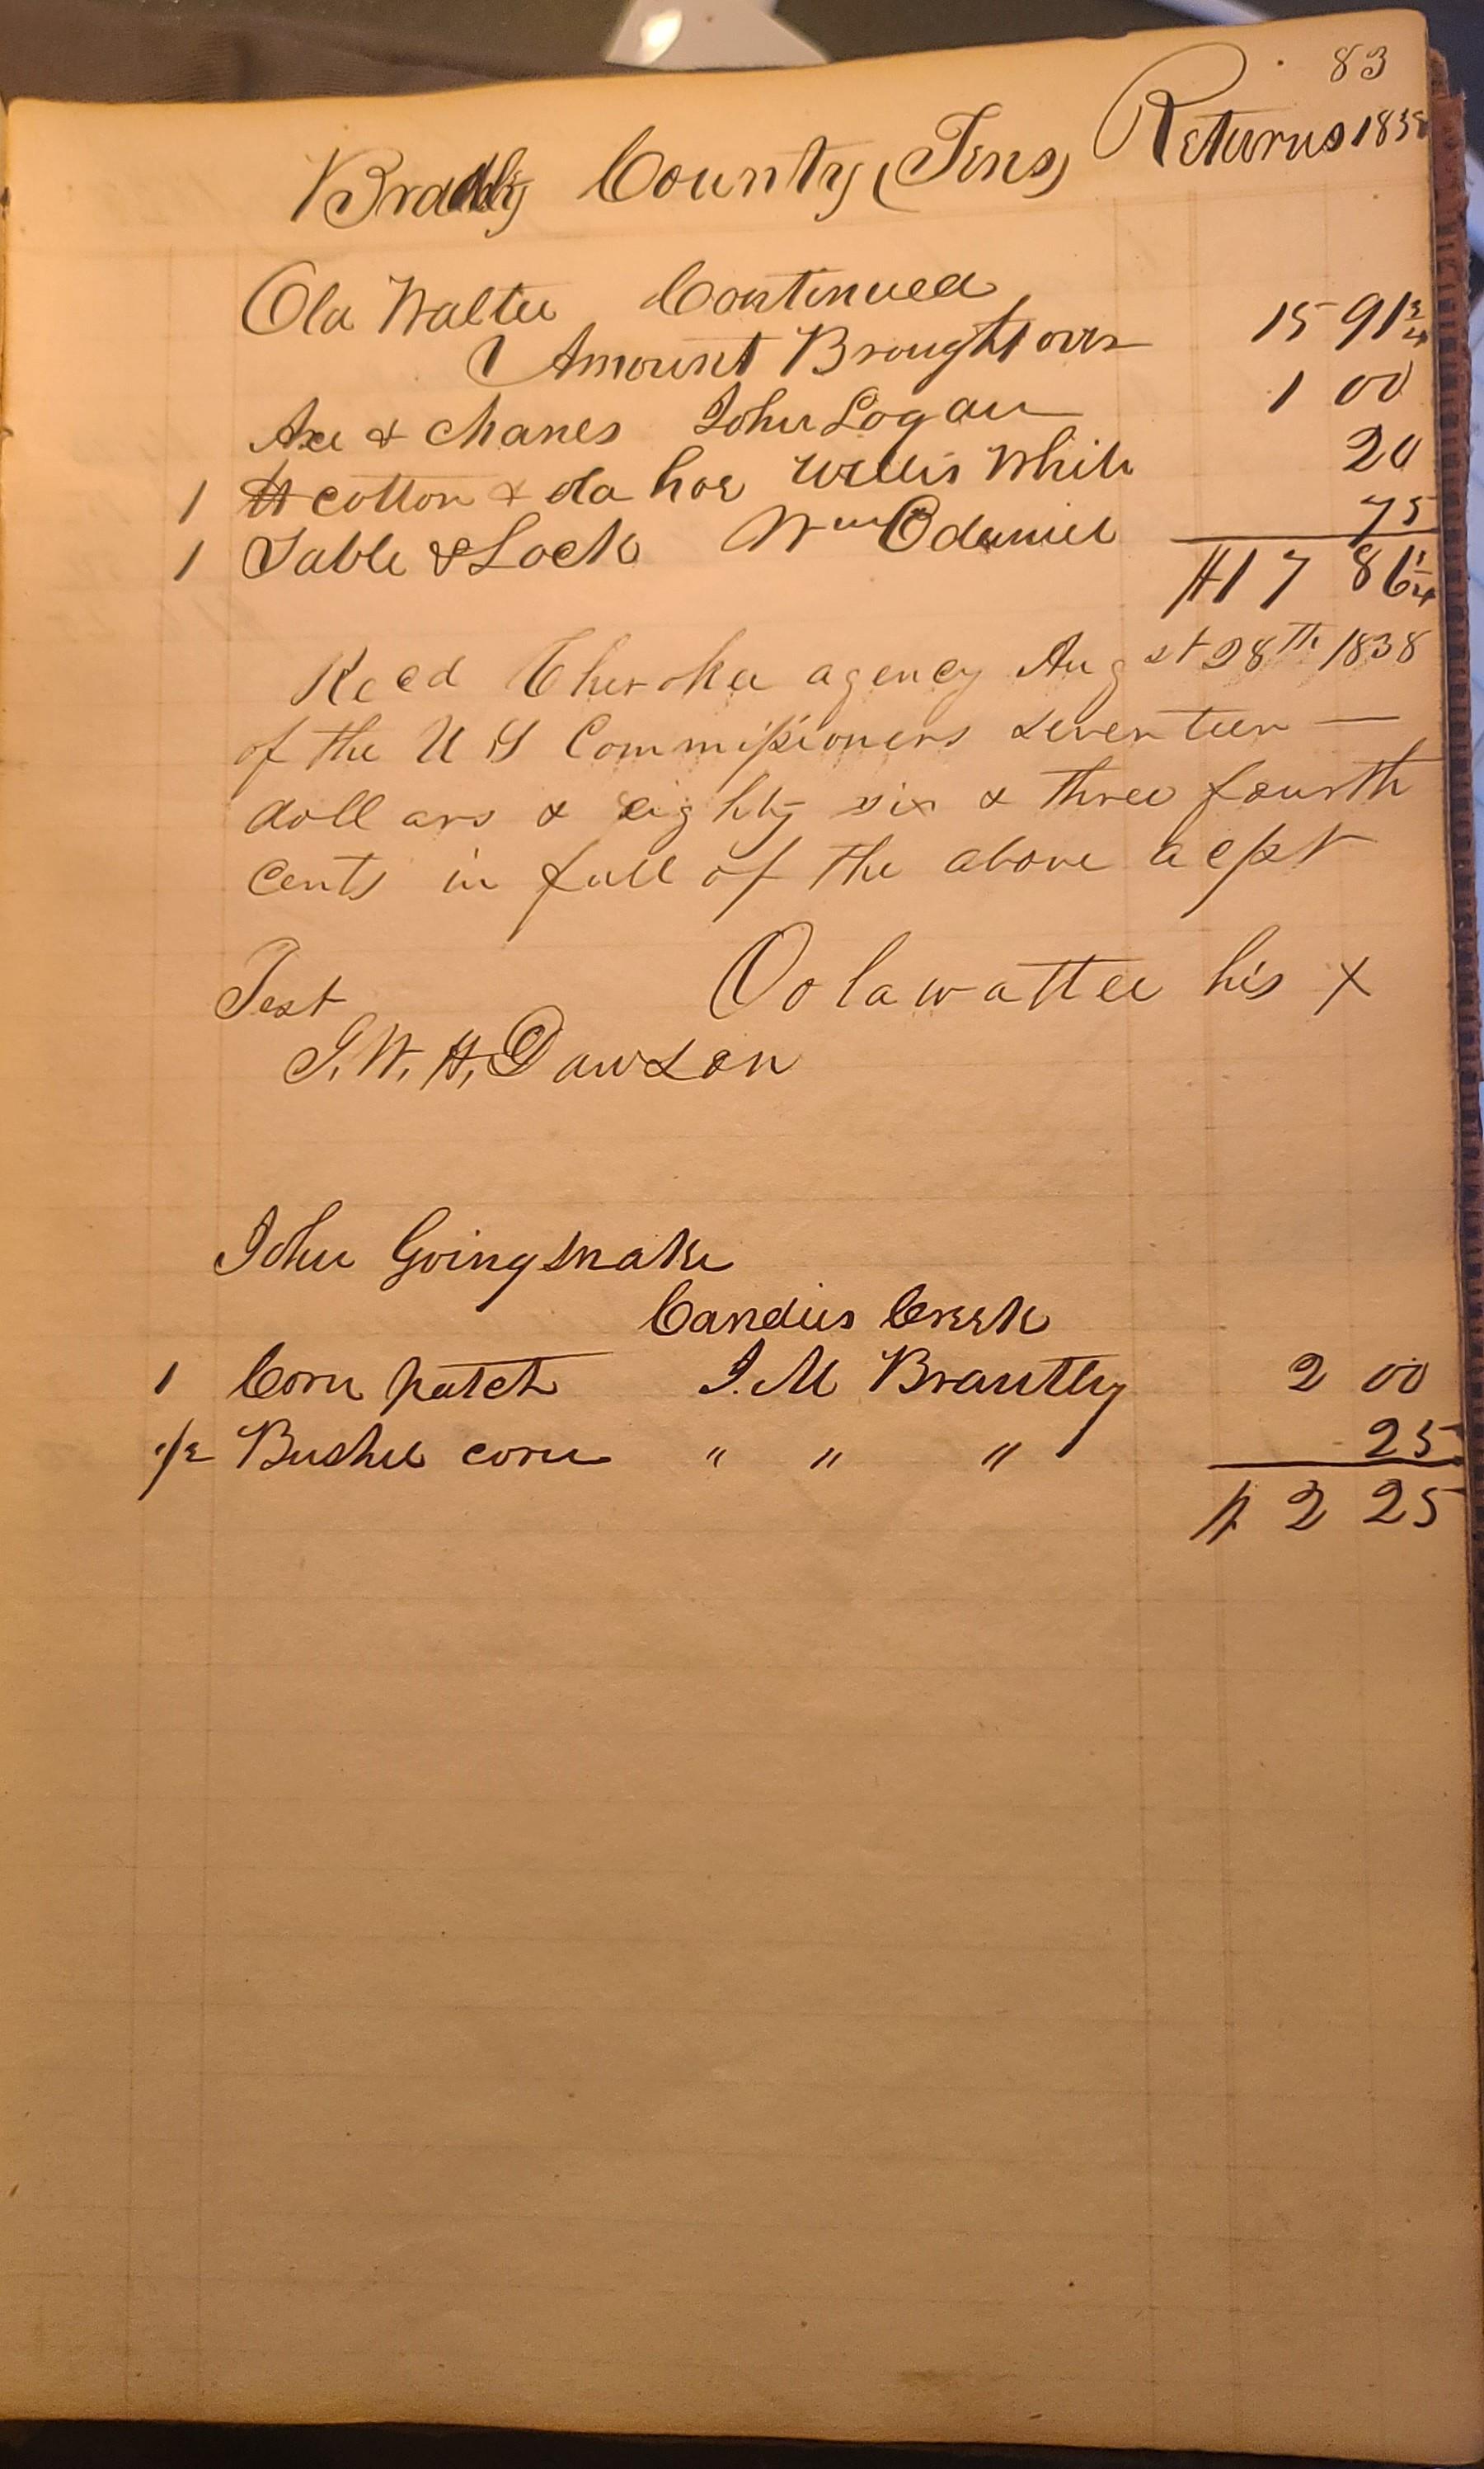 83
Bradly County, (Tens) Returns 1838
Ola Walter Continued
Amount Brought over 15 91 3/4
Axe & chanes John Logan 1 00
1 ℔ cotton & old hoe Willis White 20
1 Table & Lock Wm Odaniel 75
$17 86 3/4
Recd Cherokee agency Augst 28th 1838
of the U S Commissioners seventeen —
dollars & eighty six & three fourth
cents in full of the above acpt
Oolawattee his X
Test
J. W. H. Dawson
John Goingsnake
Candies Creek
1 Corn patch J. M Brantly 2 00
1/2 Bushel corn " " " 25
$ 2 25